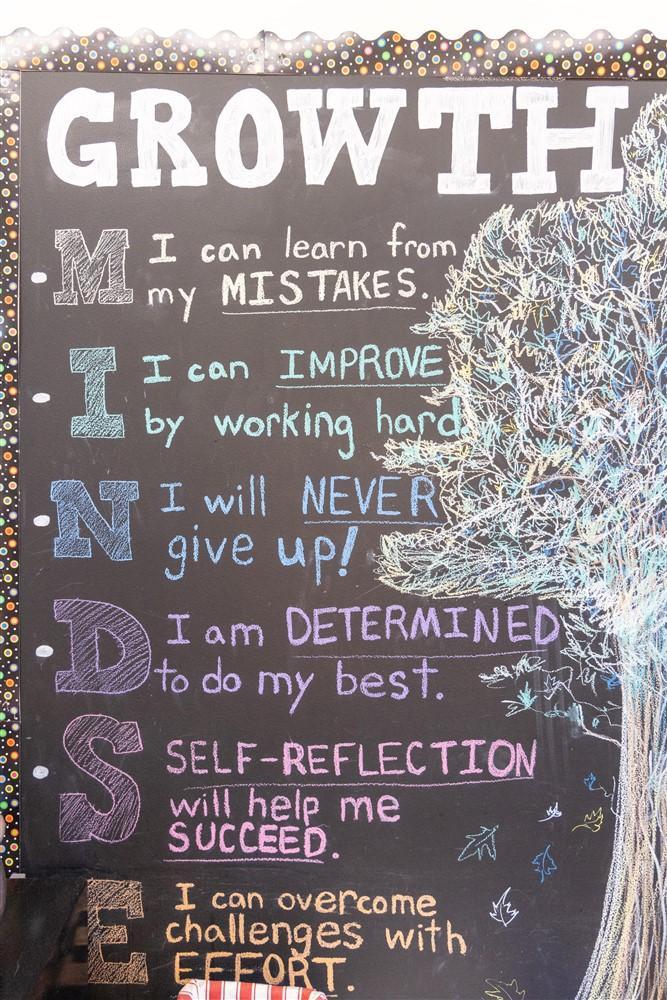 GROWTH
M I can learn from
my MISTAKES.
I I can IMPROVE
by working hard
N I will NEVER
give up!
D I am DETERMINED
to do my best.
S SELF-REFLECTION
will help me
SUCCEED.
E I can overcome
challenges with
EFFORT.